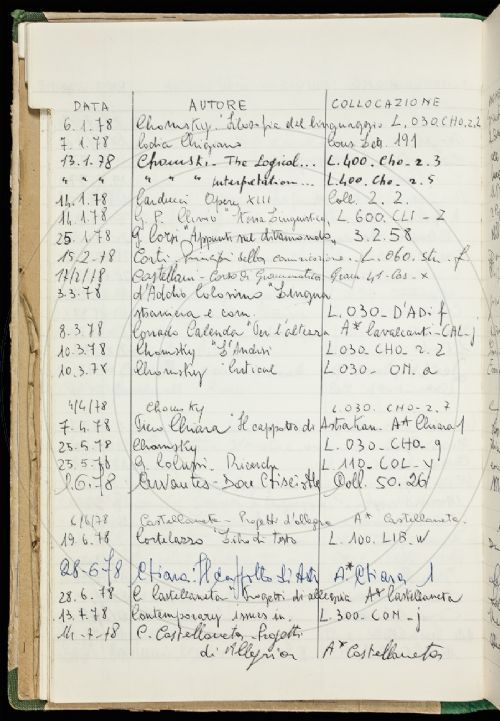 DATA AUTORE COLLOCAZIONE
6.1.78 Chomsky. Filosofia del linguaggio L. 030.CHO.2.2
7.1.78 Codia Chigiano Cons. Let. 191
13.1.78 Chomski - The Logical... L.400. Cho - 2.3
" " " " " " interpretation... L.400. Cho - 2.5
14.1.78 Carducci Opere XIII Coll. 2. 2.
14.1.78 G. P. Clivio Linguistica L 600. CLI - Z
25.1.78 G Corsi "Appunti sul dittamondo" 3.2.58
15/2/78 Corti. Principi della comunicazione. L. 060.
17/2/78 Castellani - Corso di Grammatica Gram 41 - Cas - x
3.3.78 d'Addio Colosimo "Lingua
straniera e com. L. 030 - D'ADi f
8.3.78 Corrado Calenda "Per l'altezza A* Cavalcanti - CAL - j
10.3.78 Chomsky L 030 - CHO - 2. 2
10.3.78 Chomsky L 030 - OM. a
4/4/78 Chomsky L. 030. CHO - 2. 7
7.4.78 Piero Chiara "Il cappotto di Astrakan. A* Chiara 1
25.5.78 Chomsky L. 030 - CHO - g
25.5.78 G. Colussi. Ricerche L. 110 - COL - y
2.6.78 Cervantes - Don Chisciotte Coll. 50. 26
6/6/78 Castellaneta - Progetti d'allegria A* Castellaneta.
19.6.78 Cortelazzo "Libri di testo L. 100. LIB. w
28-6-78 Chiara: Il cappotto di Astr A* Chiara 1
28.6.78 C. Castellaneta "Progetti di allegria A* Castellaneta
13.7.78 Contemporary issues in. L. 300 - CON - j
14-7-78 C. Castellaneta - Progetti
di Allegria A* Castellaneta